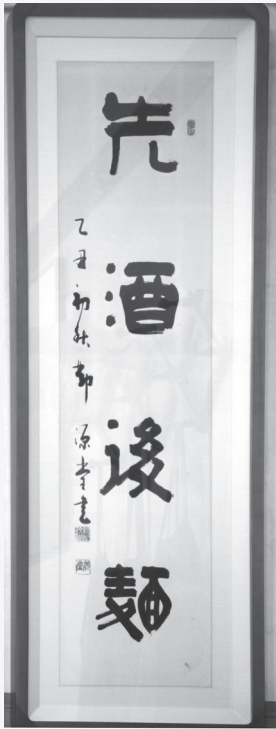 先酒後麵
乙丑初秋 源堂書